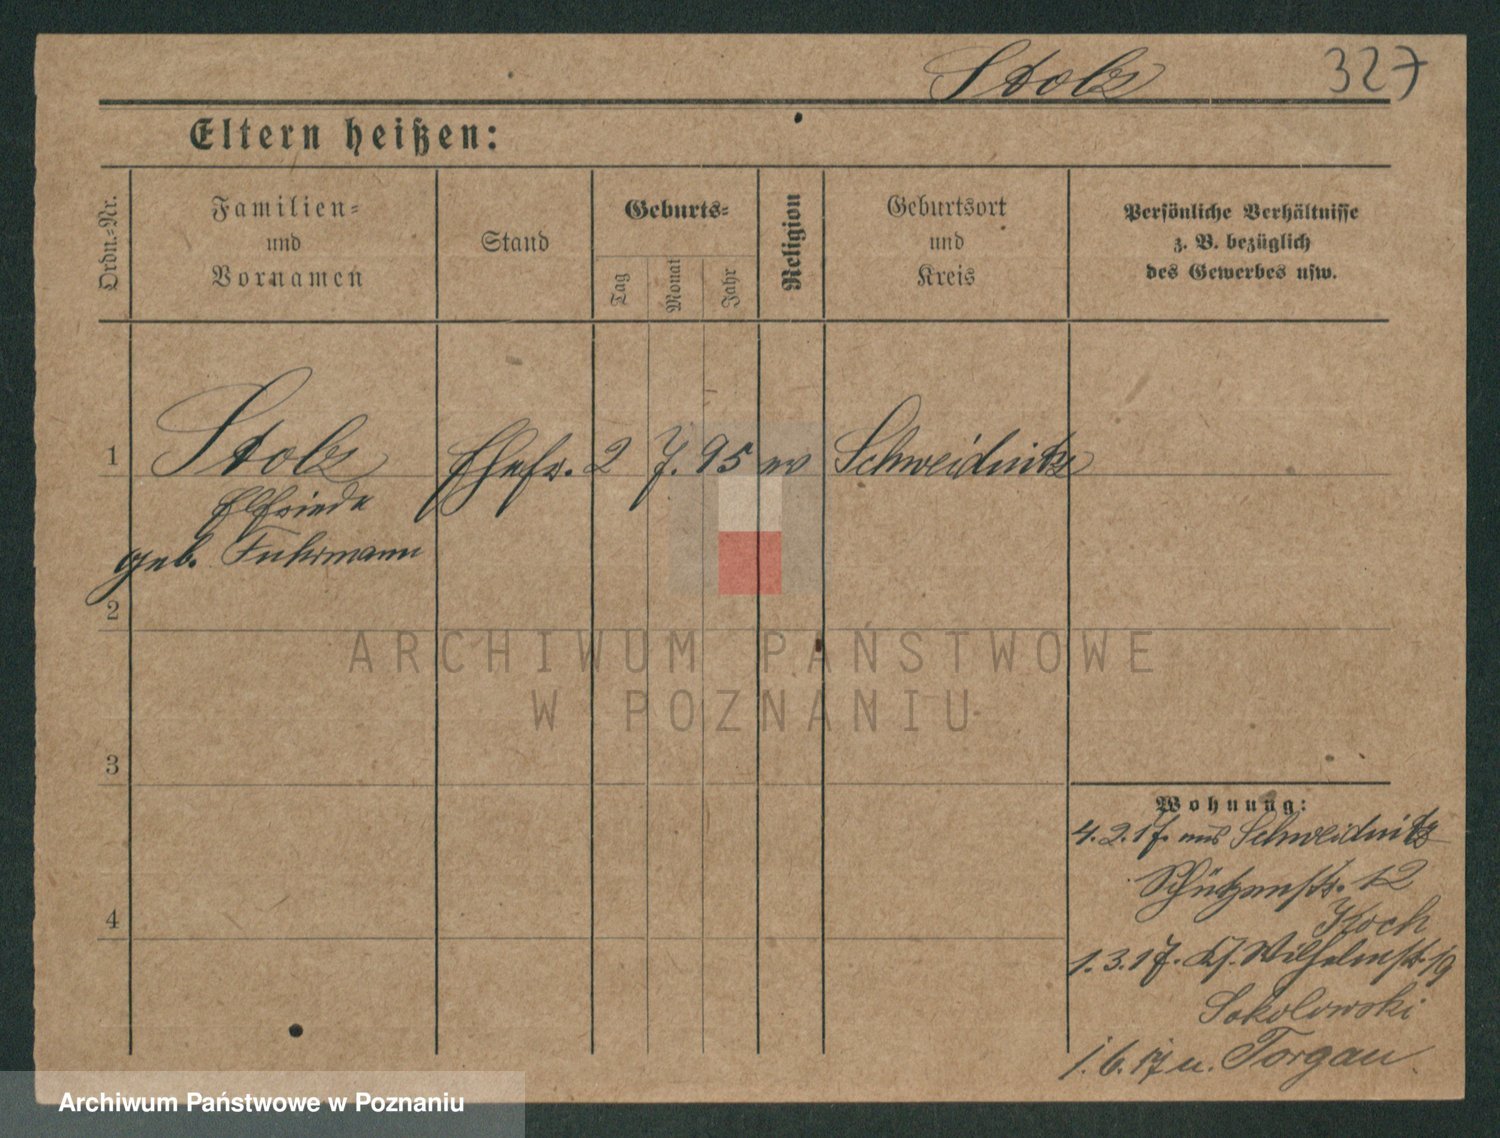 Stolz 327
Eltern heißen:
Ordn.-Nr.
Familien-
und
Vornamen
Stand
Geburts-
Tag
Monat
Jahr
Religion
Geburtsort
und
Kreis
Persönliche Verhältnisse
z. B. bezüglich
des Gewerbes usw.
1 Stolz Ehefr. 2 7. 95 ev Schweidnitz
Elfriede
geb. Fuhrmann
2
3
4
Wohnung:
4. 2. 17. aus Schweidnitz
Schützenstr. 12
Koch
1. 3. 17. Wilhelmstr. 19
Sokolowski
1. 6. 17 n. Torgau
ARCHIWUM PAŃSTWOWE
W POZNANIU
Archiwum Państwowe w Poznaniu